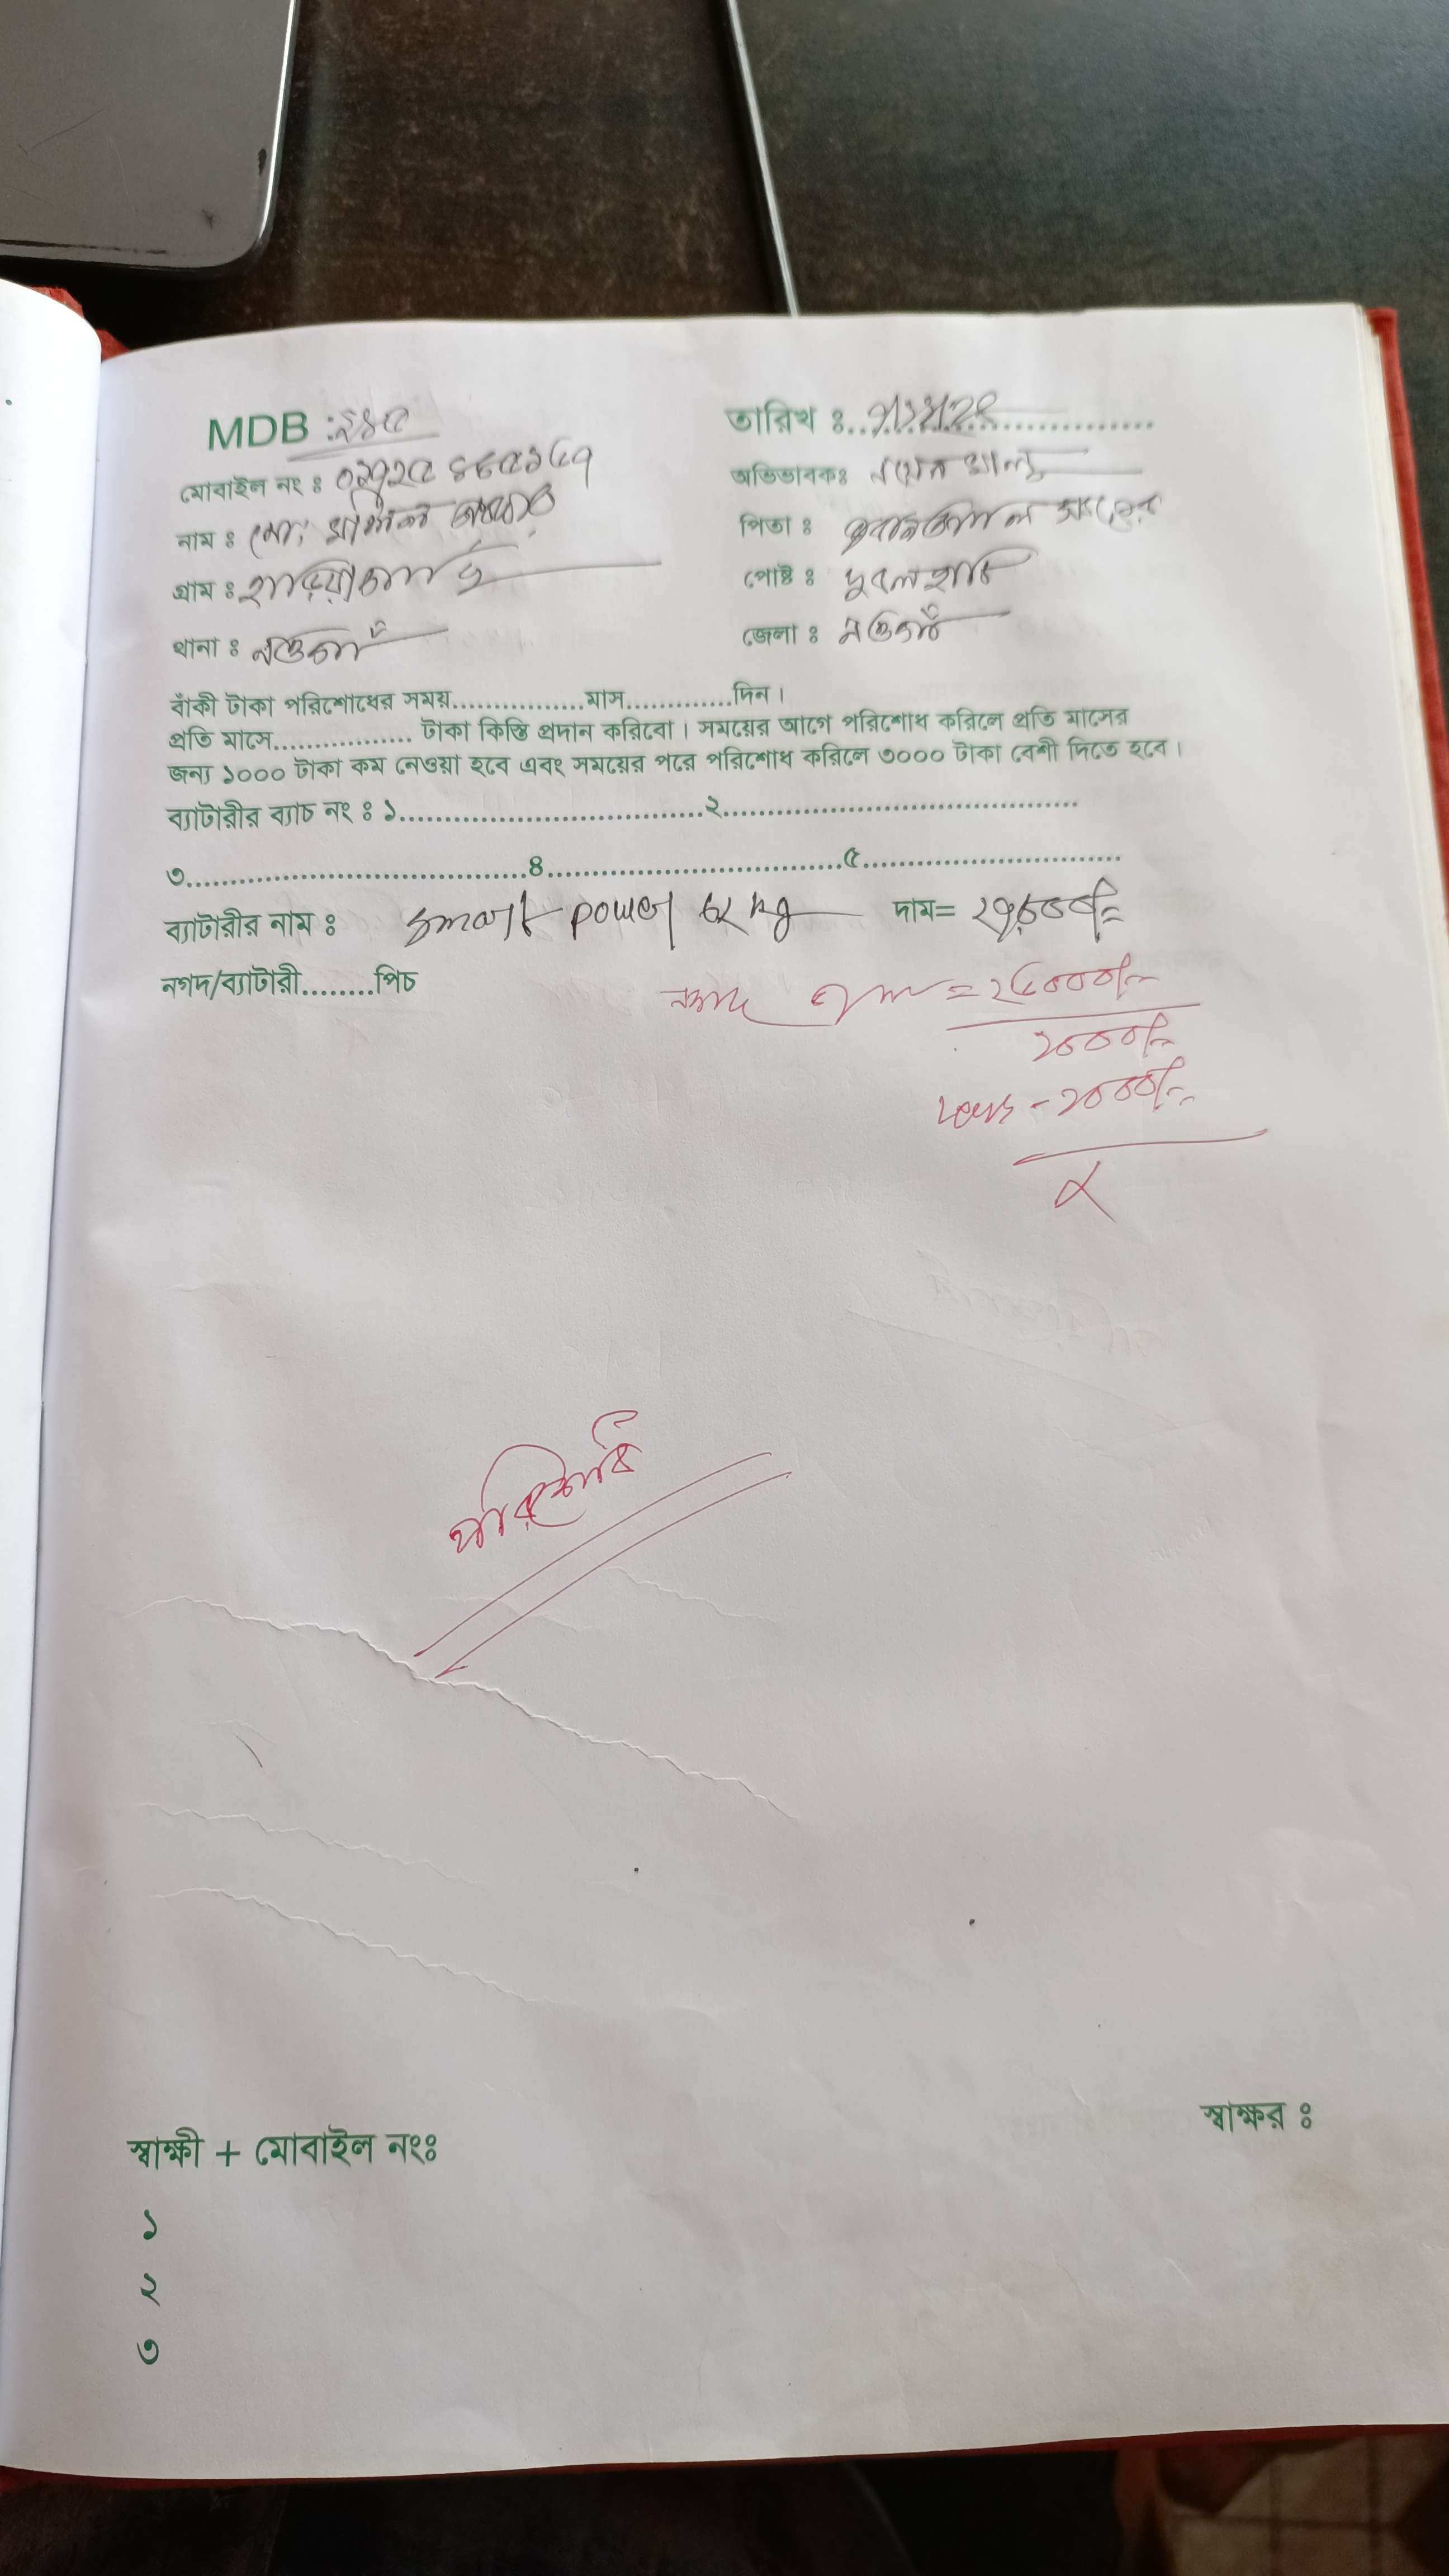 MDB : ২৪৫
তারিখ ঃ
মোবাইল নং ঃ
অভিভাবকঃ
নাম ঃ মো:
পিতা ঃ
গ্রাম ঃ
পোষ্ট ঃ দুবলহাটি
থানা ঃ নওগাঁ
জেলা ঃ নওগাঁ
বাঁকী টাকা পরিশোধের সময়................মাস.............দিন।
প্রতি মাসে................. টাকা কিস্তি প্রদান করিবো। সময়ের আগে পরিশোধ করিলে প্রতি মাসের
জন্য ১০০০ টাকা কম নেওয়া হবে এবং সময়ের পরে পরিশোধ করিলে ৩০০০ টাকা বেশী দিতে হবে।
ব্যাটারীর ব্যাচ নং ঃ ১..................................২........................................
৩......................................৪.................................৫.............................
ব্যাটারীর নাম ঃ Smart power ৬২ kg দাম= ২৭০০০/=
নগদ/ব্যাটারী........পিচ
নগদ জমা = ২৬০০০/=
১০০০/=
- ১০০০/=
পরিশোধ
স্বাক্ষর ঃ
স্বাক্ষী + মোবাইল নংঃ
১
২
৩